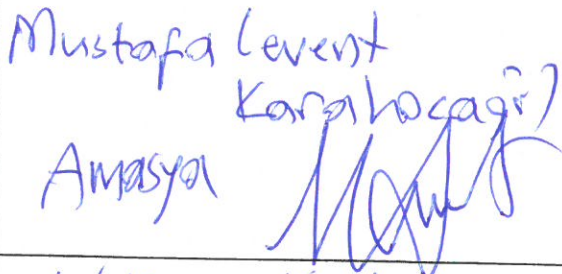 Mustafa Levent
Karahocagil
Amasya